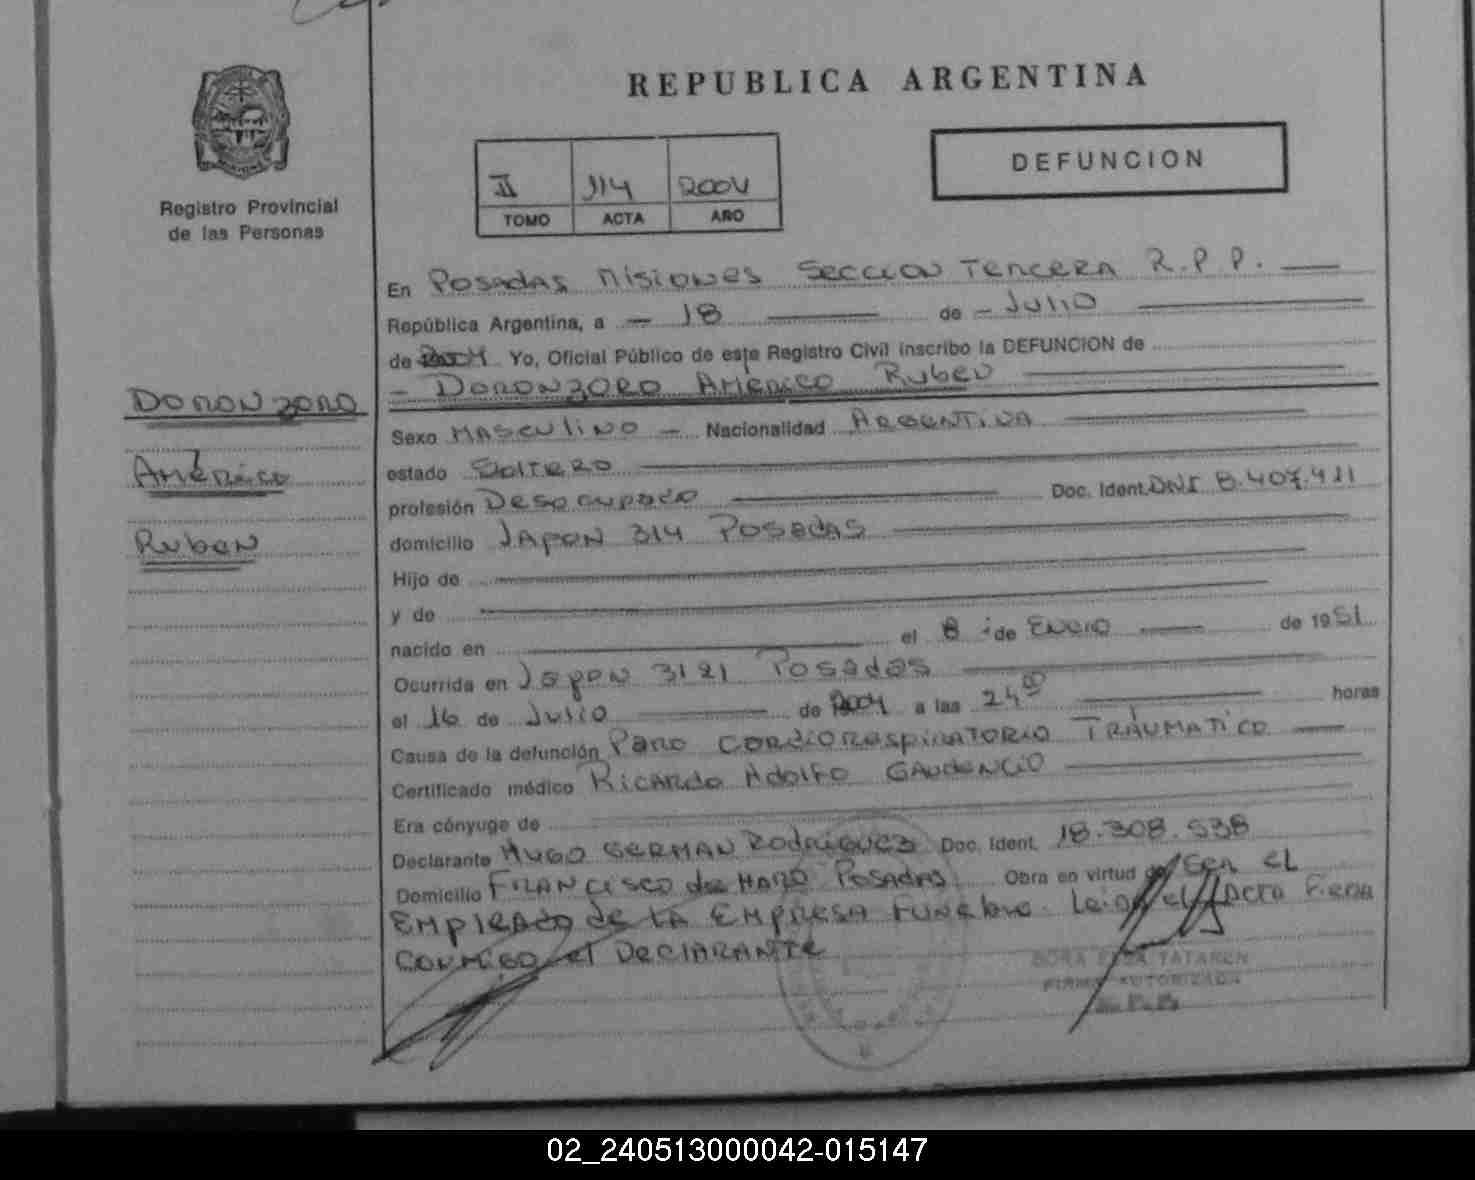 REPUBLICA ARGENTINA
Registro Provincial
de las Personas
II 114 2004
TOMO ACTA AÑO
DEFUNCION
En Posadas Misiones Seccion Tercera R.P.P.
República Argentina, a - 18 de - Julio
de 2004 Yo, Oficial Público de este Registro Civil inscribo la DEFUNCION de
- Doronzoro Américo Ruben
Doronzoro
Américo
Ruben
Sexo Masculino - Nacionalidad Argentina
estado Soltero
profesión Desocupado Doc. Ident. DNI 8.407.411
domicilio Japon 314 Posadas
Hijo de
y de
nacido en el 8 de Enero de 1951
Ocurrida en Japon 3121 Posadas
el 16 de Julio de 2004 a las 24 00 horas
Causa de la defunción Paro Cordiorespiratorio Traumatico
Certificado médico Ricardo Adolfo Gaudencio
Era cónyuge de
Declarante Hugo German Rodriguez Doc. Ident. 18.308.538
Domicilio Francisco de Haro Posadas Obra en virtud de Ser el
Empleado de la Empresa Funebre. Leida el Acta Firma
Conmigo el Declarante
FIRMA AUTORIZADA
02_240513000042-015147